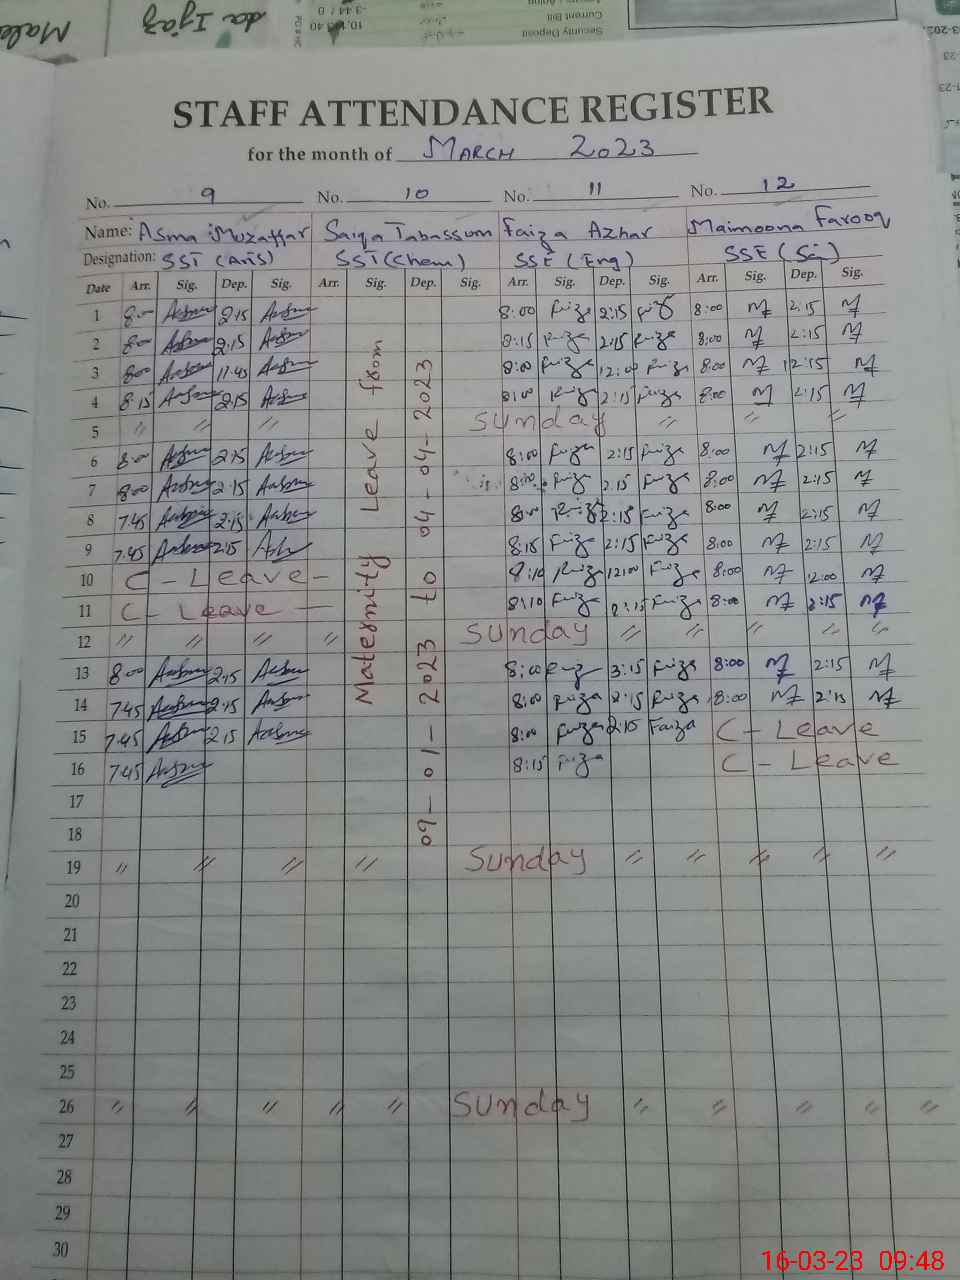 Security Deposit
Current Bill
STAFF ATTENDANCE REGISTER
for the month of MARCH 2023
No. 9 No. 10 No. 11 No. 12
Name: Asma Muzaffar Saiqa Tabassum Faiza Azhar Maimoona Farooq
Designation: SST (Arts) SST (Chem) SSE (Eng) SSE (Sci)
Date Arr. Sig. Dep. Sig. Arr. Sig. Dep. Sig. Arr. Sig. Dep. Sig. Arr. Sig. Dep. Sig.
Maternity Leave from
09-01-2023 to 04-04-2023
1 8:00 2:15 8:00 Faiza 2:15 8:00 2:15
2 8:00 2:15 8:15 Faiza 2:15 Faiza 8:00 2:15
3 8:00 11:45 8:00 Faiza 12:00 Faiza 8:00 12:15
4 8:15 2:15 8:00 Faiza 2:15 Faiza 8:00 2:15
5 " " " Sunday " " "
6 8:00 2:15 8:00 Faiza 2:15 Faiza 8:00 2:15
7 8:00 2:15 8:00 Faiza 2:15 Faiza 8:00 2:15
8 7:45 2:15 8:00 Faiza 2:15 Faiza 8:00 2:15
9 7:45 2:15 8:15 Faiza 2:15 Faiza 8:00 2:15
10 C - Leave - 8:10 Faiza 12:00 Faiza 8:00 12:00
11 C - Leave - 8:10 Faiza 2:15 Faiza 8:00 2:15
12 " " " " Sunday " " " " "
13 8:00 2:15 8:00 Faiza 2:15 Faiza 8:00 2:15
14 7:45 2:15 8:00 Faiza 2:15 Faiza 8:00 2:15
15 7:45 2:15 8:00 Faiza 2:15 Faiza C - Leave
16 7:45 8:15 Faiza C - Leave
17
18
19 " " " " Sunday " " " " "
20
21
22
23
24
25
26 " " " " " Sunday " " " " "
27
28
29
30
16-03-23 09:48